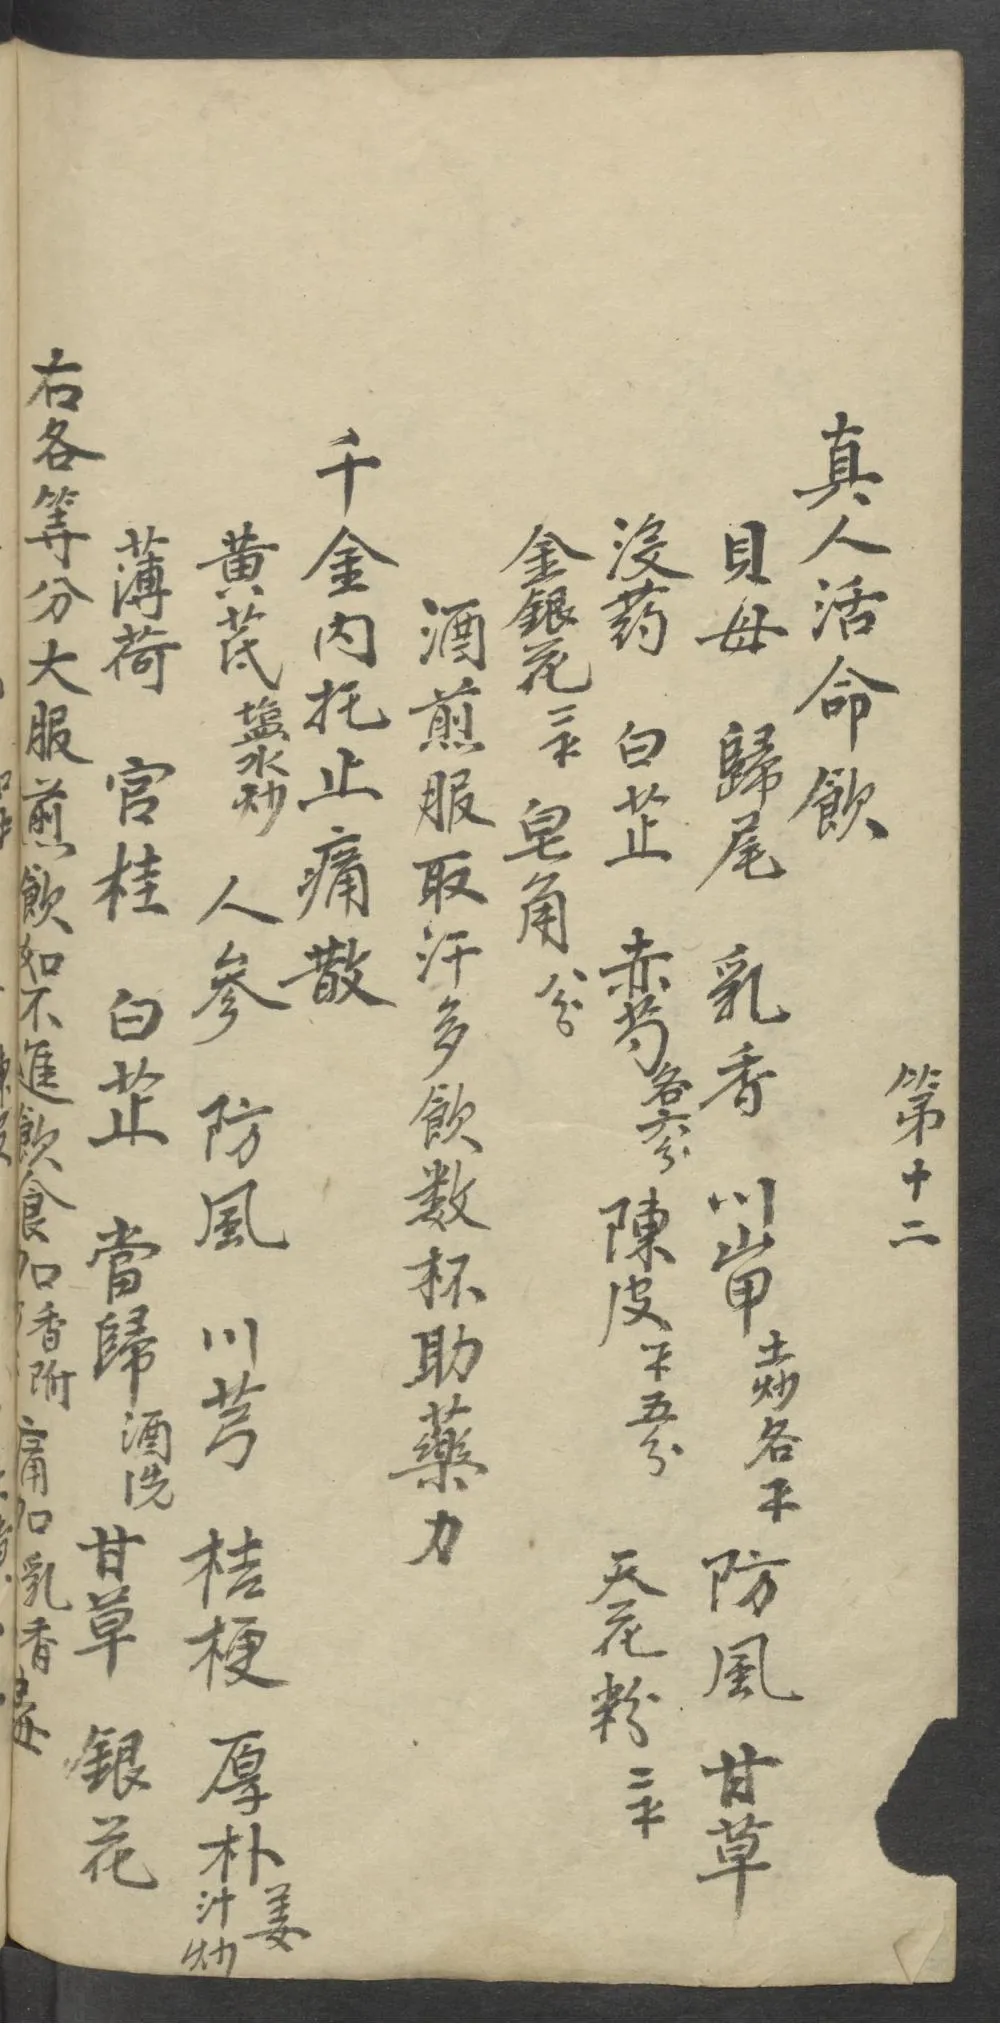 第十二
真人活命飲
貝母 歸尾 乳香 川山甲土炒各一錢 防風 甘草
沒药 白芷 赤芍各六分 陳皮一錢五分 天花粉二錢
金銀花三錢 皂角八分
酒煎服取汗多飲数杯助藥力
千金内托止痛散
黄芪塩水炒 人參 防風 川芎 桔梗 厚朴姜汁炒
薄荷 官桂 白芷 當歸酒洗 甘草 銀花
右各等分大服煎飲如不進飲食加香附痛加乳香